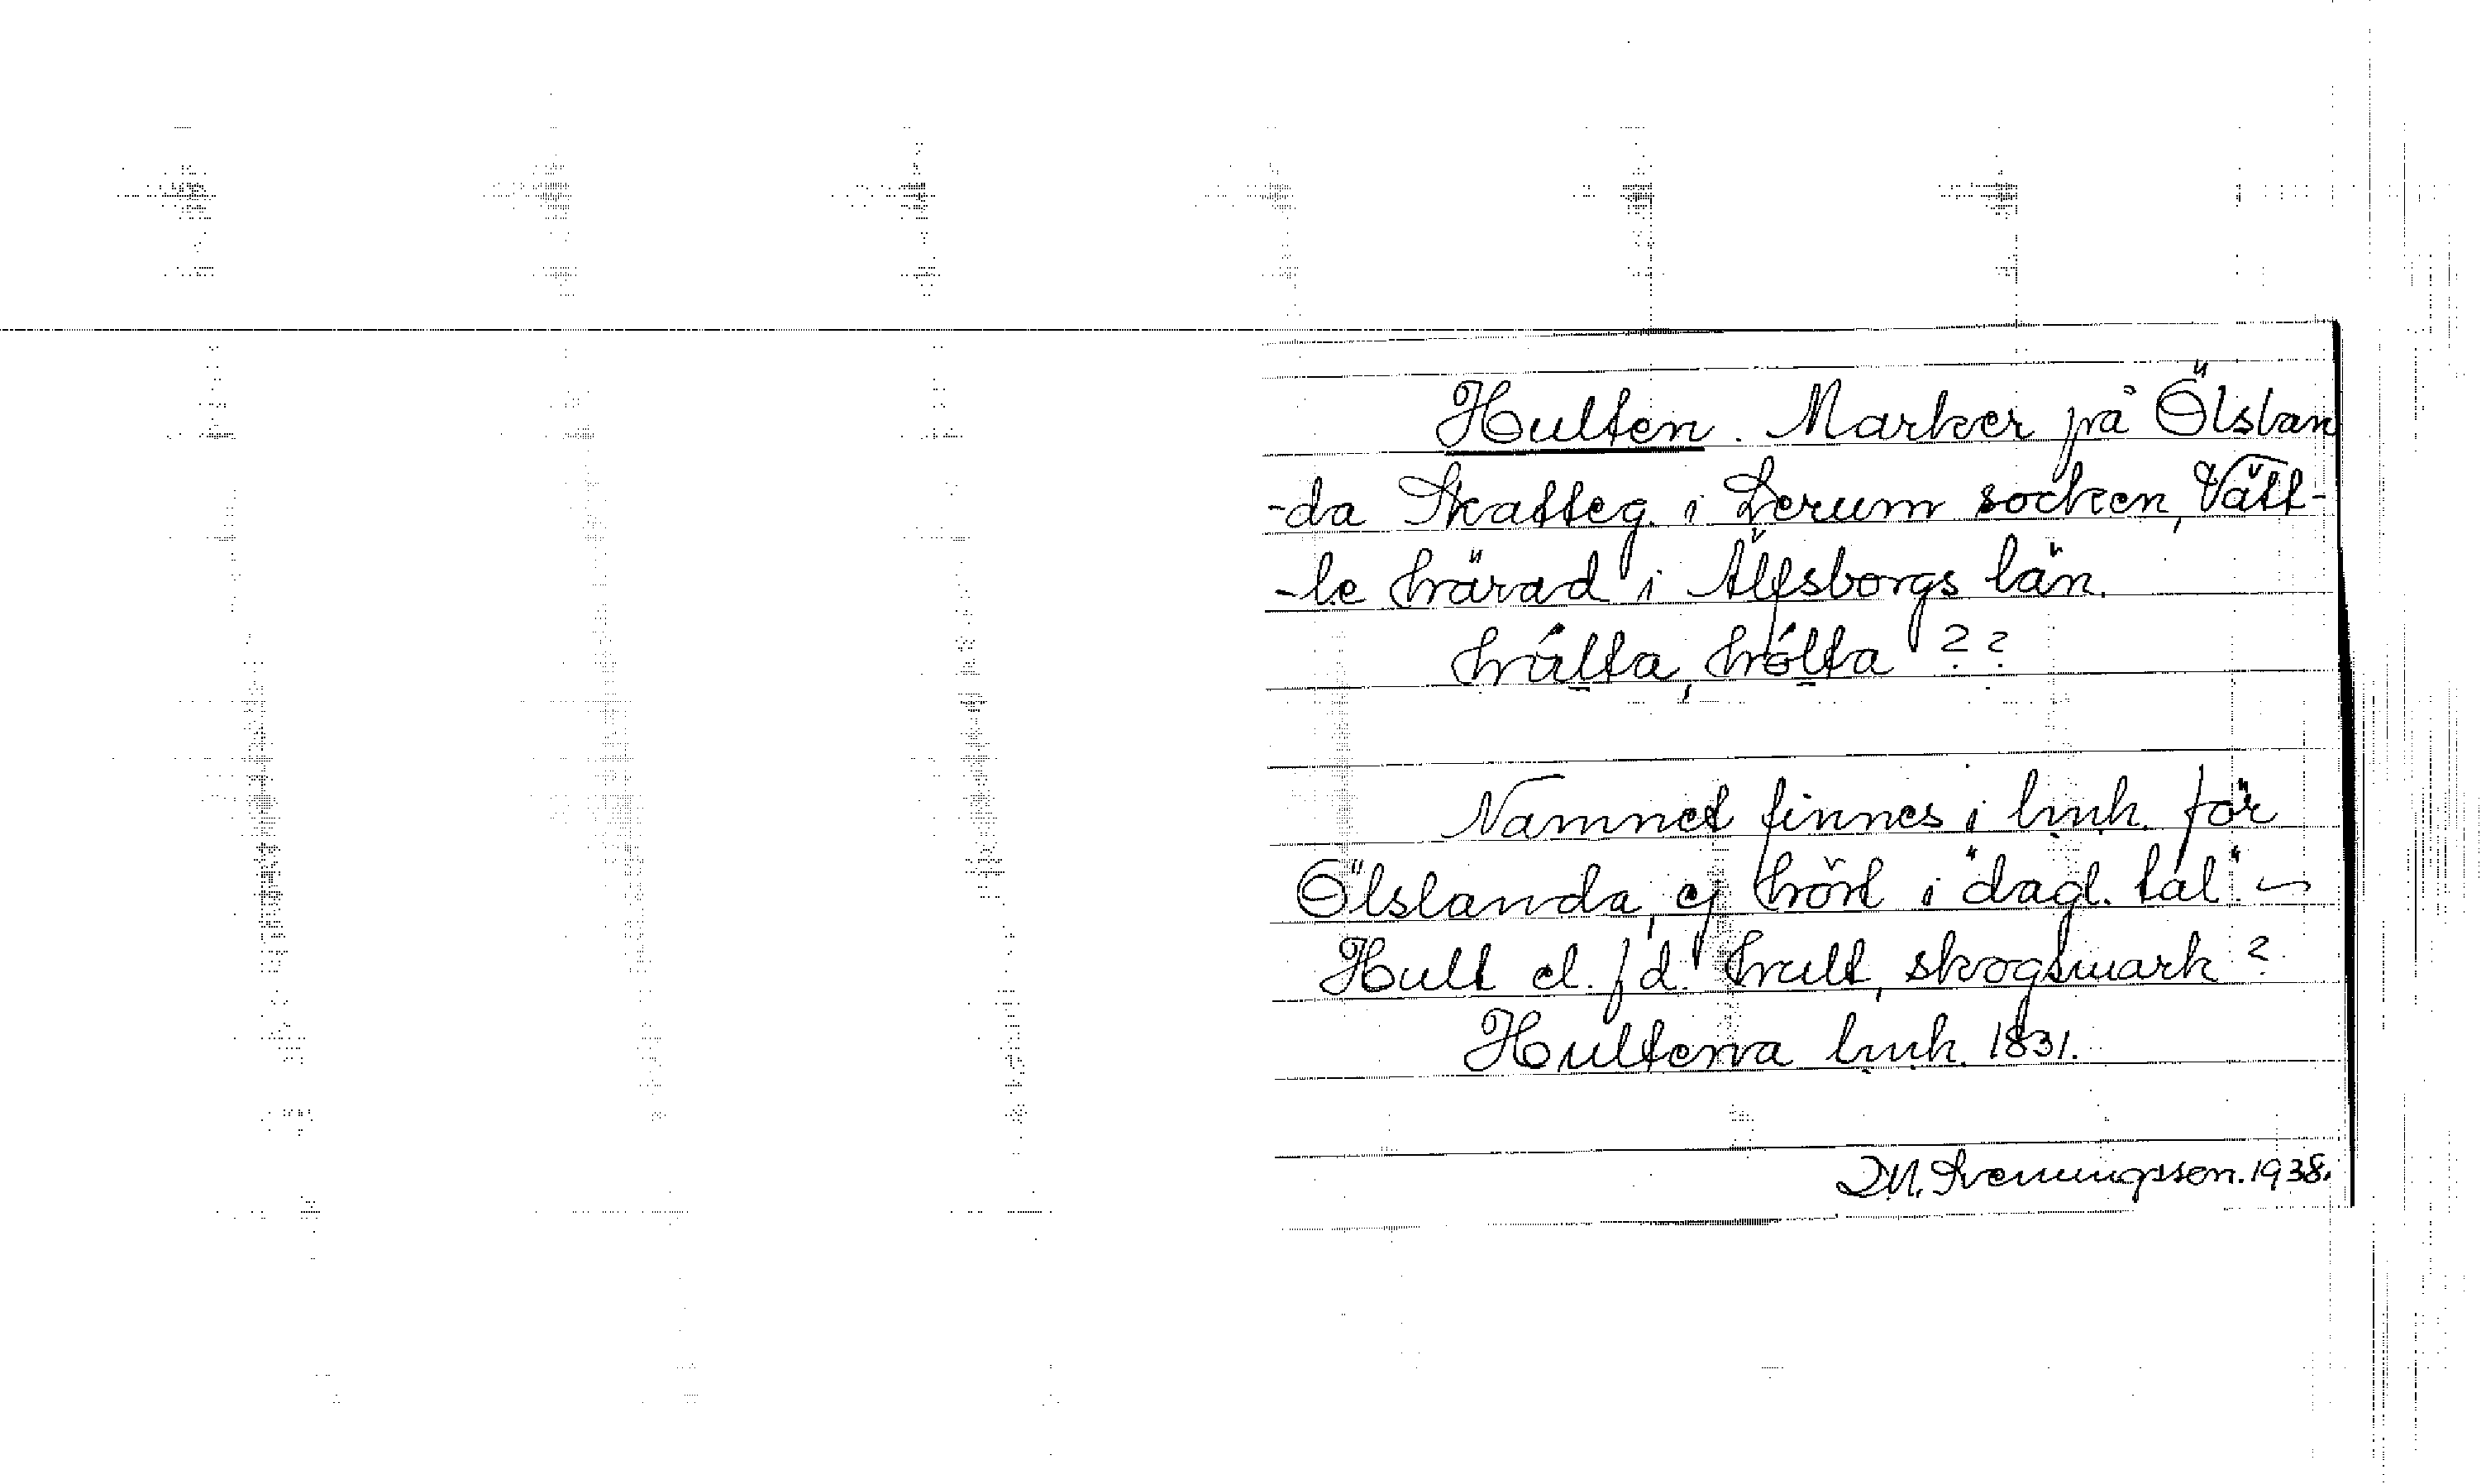 Hulten. Marker på Ölslan
-da Skatteg. i Lerum socken, Vätt-
-le härad i Älfsborgs län.
húlta, hólta ??
Namnet finnes i lmh. för
Ölslanda, ej hört i "dagl. tal" ~
Hult el. f d. hult, skogsmark?
Hulterna lmh. 1831.
D.M. Svenningsson. 1938.